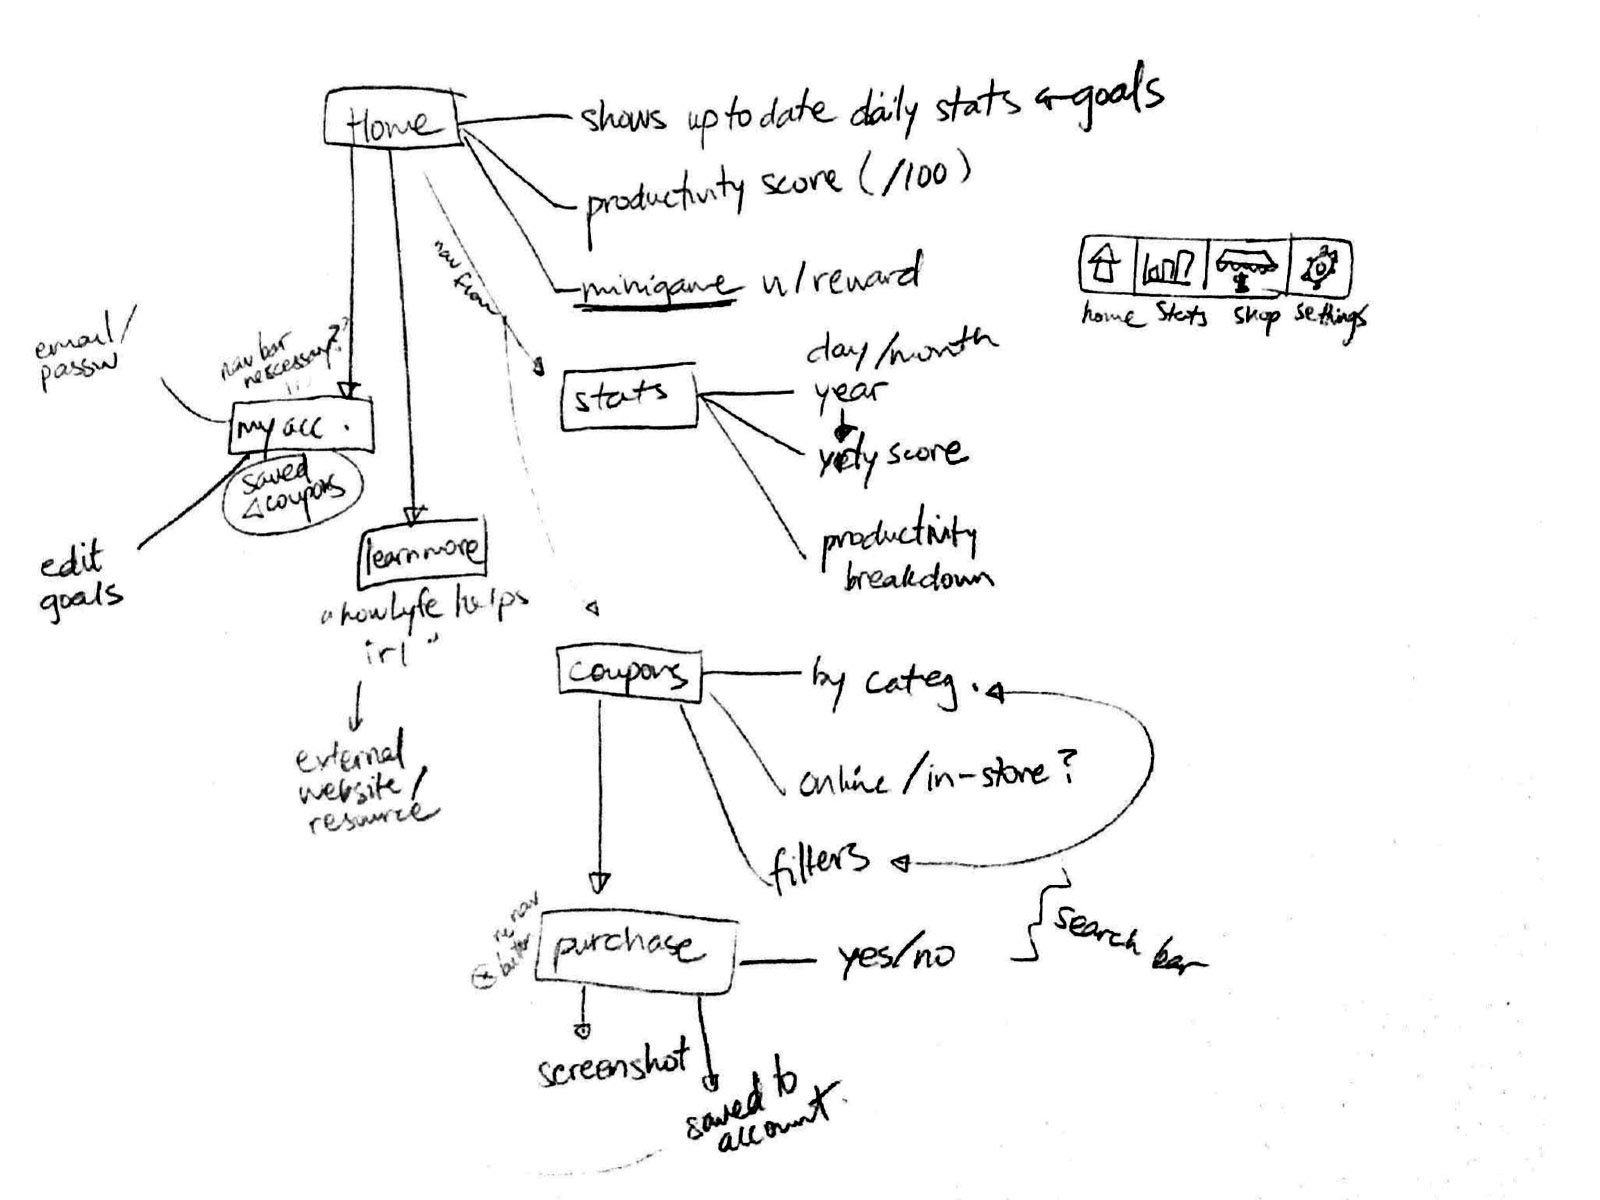 Home
shows up to date daily stats & goals
productivity score (/100)
minigame w/reward
nav flow
home stats shop settings
email/
passw
nav bar
nescessary??
my acc.
saved
coupons
edit
goals
stats
day/month
year
score
productivity
breakdown
learn more
"how Lyfe helps
irl"
external
website/
resource
coupons
by categ.
online/in-store?
filters
search bar
purchase
yes/no
nav
screenshot
saved to
account.